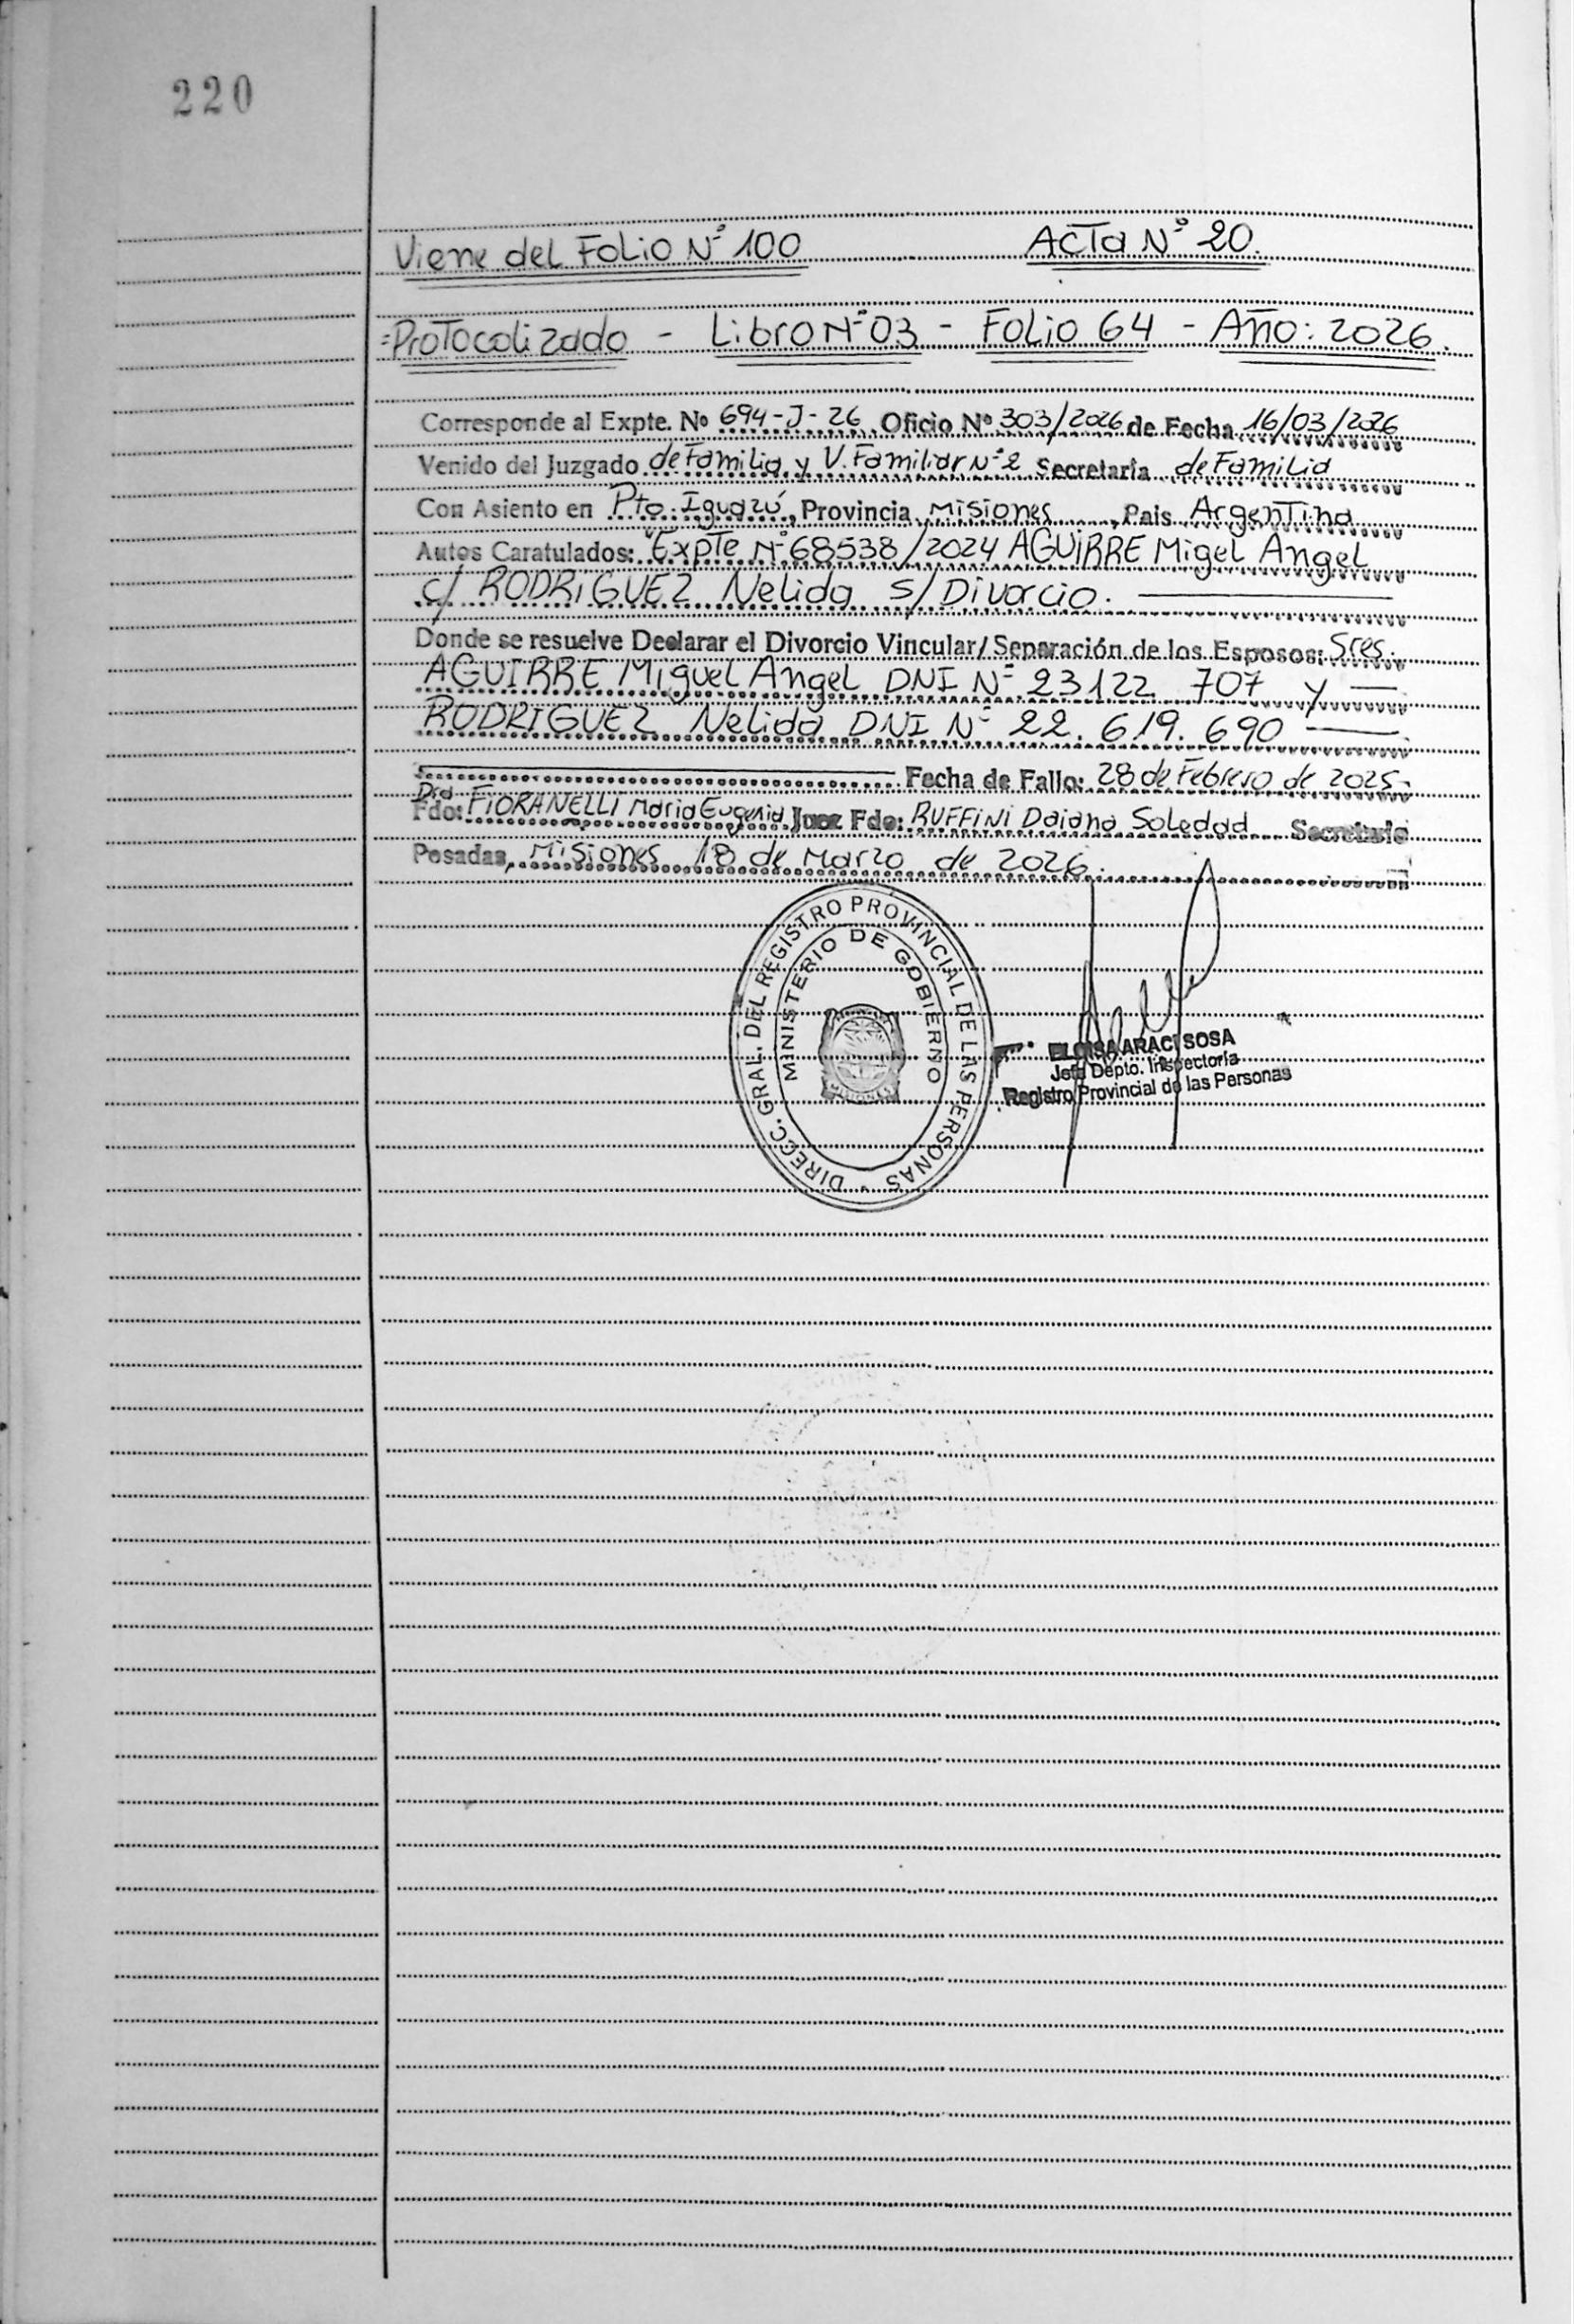 220
Viene del Folio Nº 100 Acta Nº 20.
=Protocolizado - Libro Nº 03 - Folio 64 - Año: 2026.
Corresponde al Expte. Nº 694-J-26 Oficio Nº 303/2026 de Fecha 16/03/2026
Venido del Juzgado de Familia y V. Familiar Nº 2 Secretaría de Familia
Con Asiento en Pto. Iguazú, Provincia Misiones, Pais Argentina
Autos Caratulados: "Expte Nº 68538/2024 AGUIRRE Migel Angel
c/ RODRIGUEZ Nelida s/ Divorcio.
Donde se resuelve Declarar el Divorcio Vincular/ Separación de los Esposos: Sres.
AGUIRRE Miguel Angel DNI Nº 23122 707 y
RODRIGUEZ Nelida DNI Nº 22.619.690
Fecha de Fallo: 28 de Febrero de 2025-
Dra
Fdo: FIORANELLI Maria Eugenia Juez Fdo: RUFFINI Daiana Soledad Secretario
Posadas, Misiones 18 de Marzo de 2026.
DIRECC. GRAL. DEL REGISTRO PROVINCIAL DE LAS PERSONAS
MINISTERIO DE GOBIERNO
ELOISA ARACI SOSA
Jefa Depto. Inspectoría
Registro Provincial de las Personas